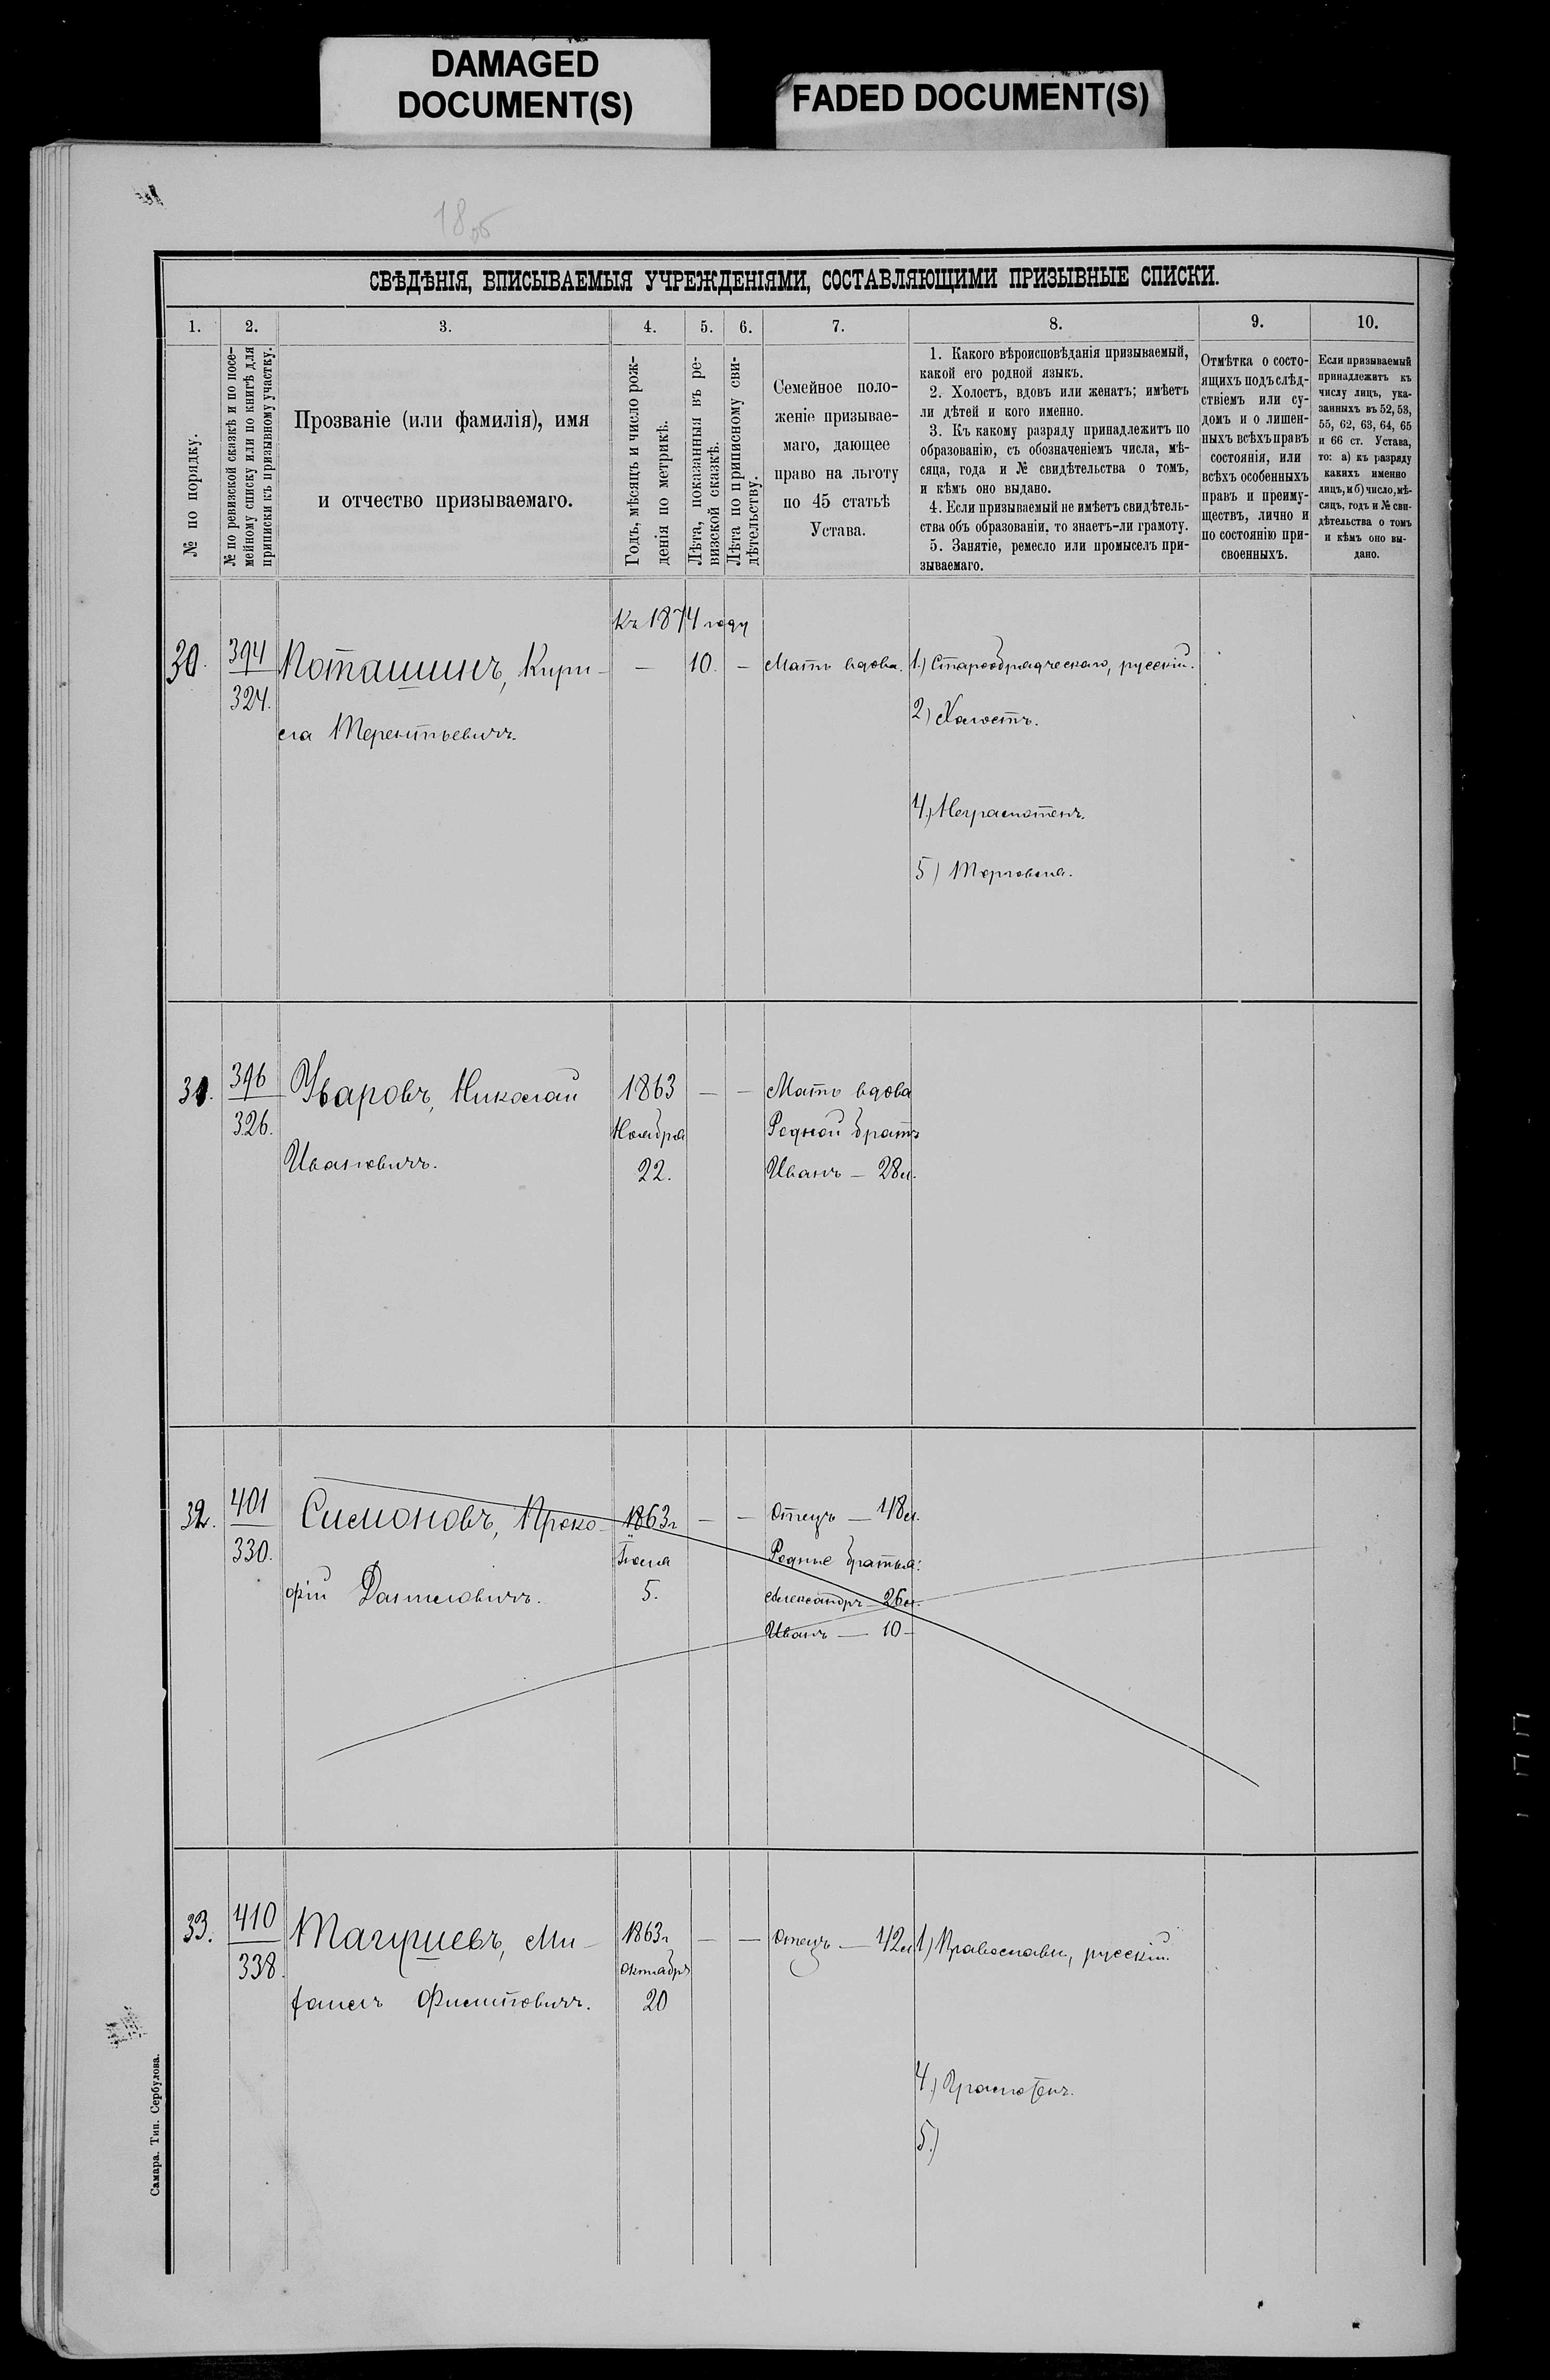 DAMAGED
DOCUMENT(S)
FADED DOCUMENT(S)
СВѢДѢНІЯ, ВПИСЫВАЕМЫЯ УЧРЕЖДЕНІЯМИ, СОСТАВЛЯЮЩИМИ ПРИЗЫВНЫЕ СПИСКИ.
1. 2. 3. 4. 5. 6. 7. 8. 9. 10.
№ по порядку.
№ по ревизской сказкѣ и по посе-
мейному списку или по книгѣ для
приписки къ призывному участку.
Прозваніе (или фамилія), имя
и отчество призываемаго.
Годъ, мѣсяцъ и число рож-
денія по метрикѣ.
Лѣта, показанныя въ ре-
визской сказкѣ.
Лѣта по приписному сви-
дѣтельству.
Семейное поло-
женіе призывае-
маго, дающее
право на льготу
по 45 статьѣ
Устава.
1. Какого вѣроисповѣданія призываемый,
какой его родной языкъ.
2. Холостъ, вдовъ или женатъ; имѣетъ
ли дѣтей и кого именно.
3. Къ какому разряду принадлежитъ по
образованію, съ обозначеніемъ числа, мѣ-
сяца, года и № свидѣтельства о томъ,
и кѣмъ оно выдано.
4. Если призываемый не имѣетъ свидѣтель-
ства объ образованіи, то знаетъ-ли грамоту.
5. Занятіе, ремесло или промыселъ при-
зываемаго.
Отмѣтка о состо-
ящихъ подъ слѣд-
ствіемъ или су-
домъ и о лишен-
ныхъ всѣхъ правъ
состоянія, или
всѣхъ особенныхъ
правъ и преиму-
ществъ, лично и
по состоянію при-
своенныхъ.
Если призываемый
принадлежитъ къ
числу лицъ, ука-
занныхъ въ 52, 53,
55, 62, 63, 64, 65
и 66 ст. Устава,
то: а) къ разряду
какихъ именно
лицъ, и б) число, мѣ-
сяцъ, годъ и № сви-
дѣтельства о томъ
и кѣмъ оно вы-
дано.
Къ 1874 году
30. 394 Поташинъ, Кири- — 10. — Мать вдова. 1.) Старообрядческаго, русскій.
324.
ла Терентьевичъ.
2) Холостъ.
4.) Неграмотенъ.
5) Торговля.
31. 396 Уваровъ, Николай 1863 — — Мать вдова
326. Ноября Родной братъ
Ивановичъ. 22. Иванъ — 28 л.
32. 401 Симоновъ, Проко- 1863 г — — Отецъ — 48 л.
330. Іюля Родные братья:
фій Даниловичъ. 5. Александръ — 26 л.
Иванъ — 10 —
33. 410 1863 г — — Отецъ — 42 л 1.) Православн, русскій.
338. Октября
Филиповичъ. 20
4.) Грамотенъ.
5.)
Самара. Тип. Сербулова.